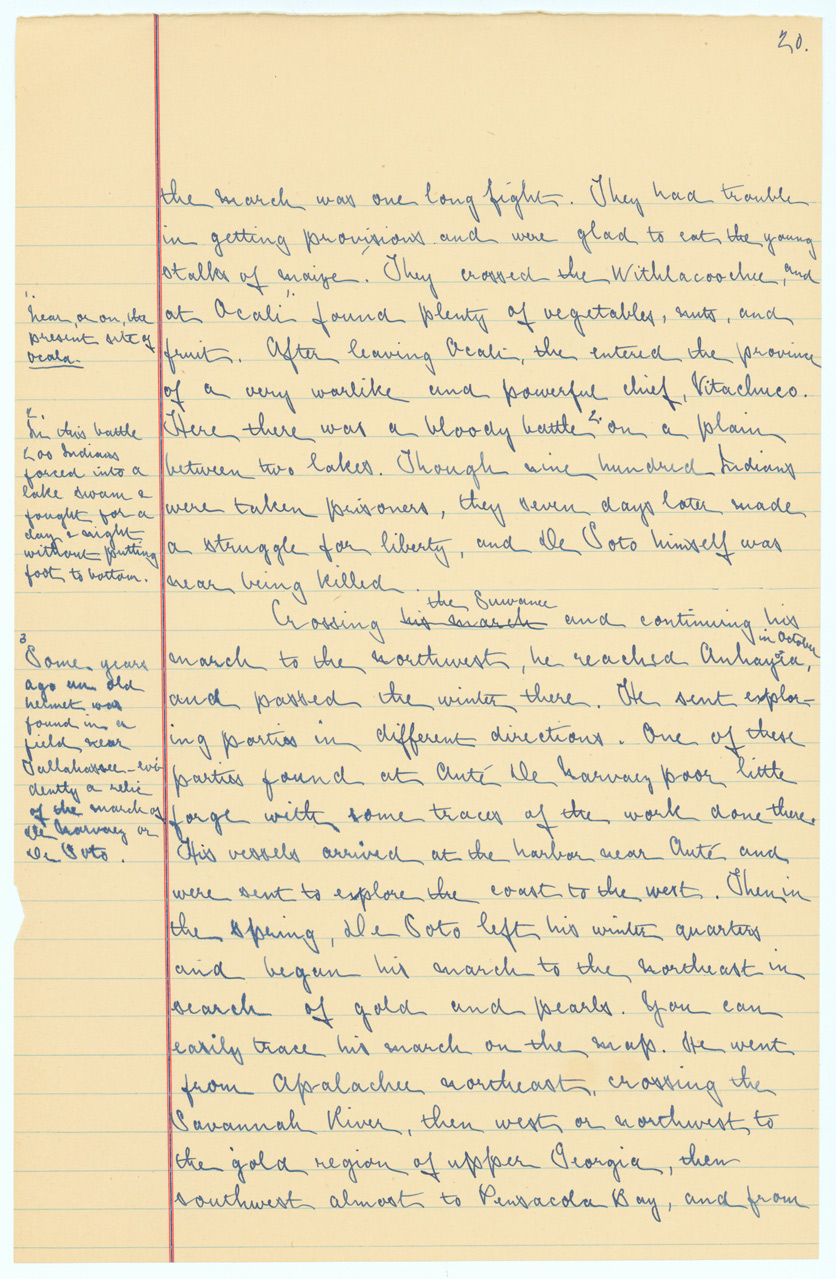 20.
the march was one long fight. They had trouble
in getting provisions and were glad to eat the young
stalks of maize. They crossed the Withlacoochee, and
at Ocali 1. found plenty of vegetables, nuts, and
fruit. After leaving Ocali, the entered the province
of a very warlike and powerful chief, Vitachuco.
Here there was a bloody battle 2. on a plain
between two lakes. Though nine hundred Indians
were taken prisoners, they seven days later made
a struggle for liberty, and De Soto himself was
near being killed.
the Suwanee
Crossing his march and continuing his
in October
march to the northwest, he reached Anhayea, 3
and passed the winter there. He sent explor-
ing parties in different directions. One of these
parties found at Auté De Narvaez poor little
forge with some traces of the work done there.
His vessels arrived at the harbor near Auté and
were sent to explore the coast to the west. Then in
the spring, De Soto left his winter quarters
and began his march to the northeast in
search of gold and pearls. You can
easily trace his march on the map. He went
from Apalachee northeast, crossing the
Savannah River, then west or northwest to
the gold region of upper Georgia, then
southwest almost to Pensacola Bay, and from
1.
Near, or on, the
present site of
Ocala.
2.
In this battle
200 Indians
forced into a
lake swam &
fought for a
day & night
without putting
foot to bottom.
3
Some years
ago an old
helmet was
found in a
field near
Tallahassee - evi-
dently a relic
of the march of
De Narvaez or
De Soto.